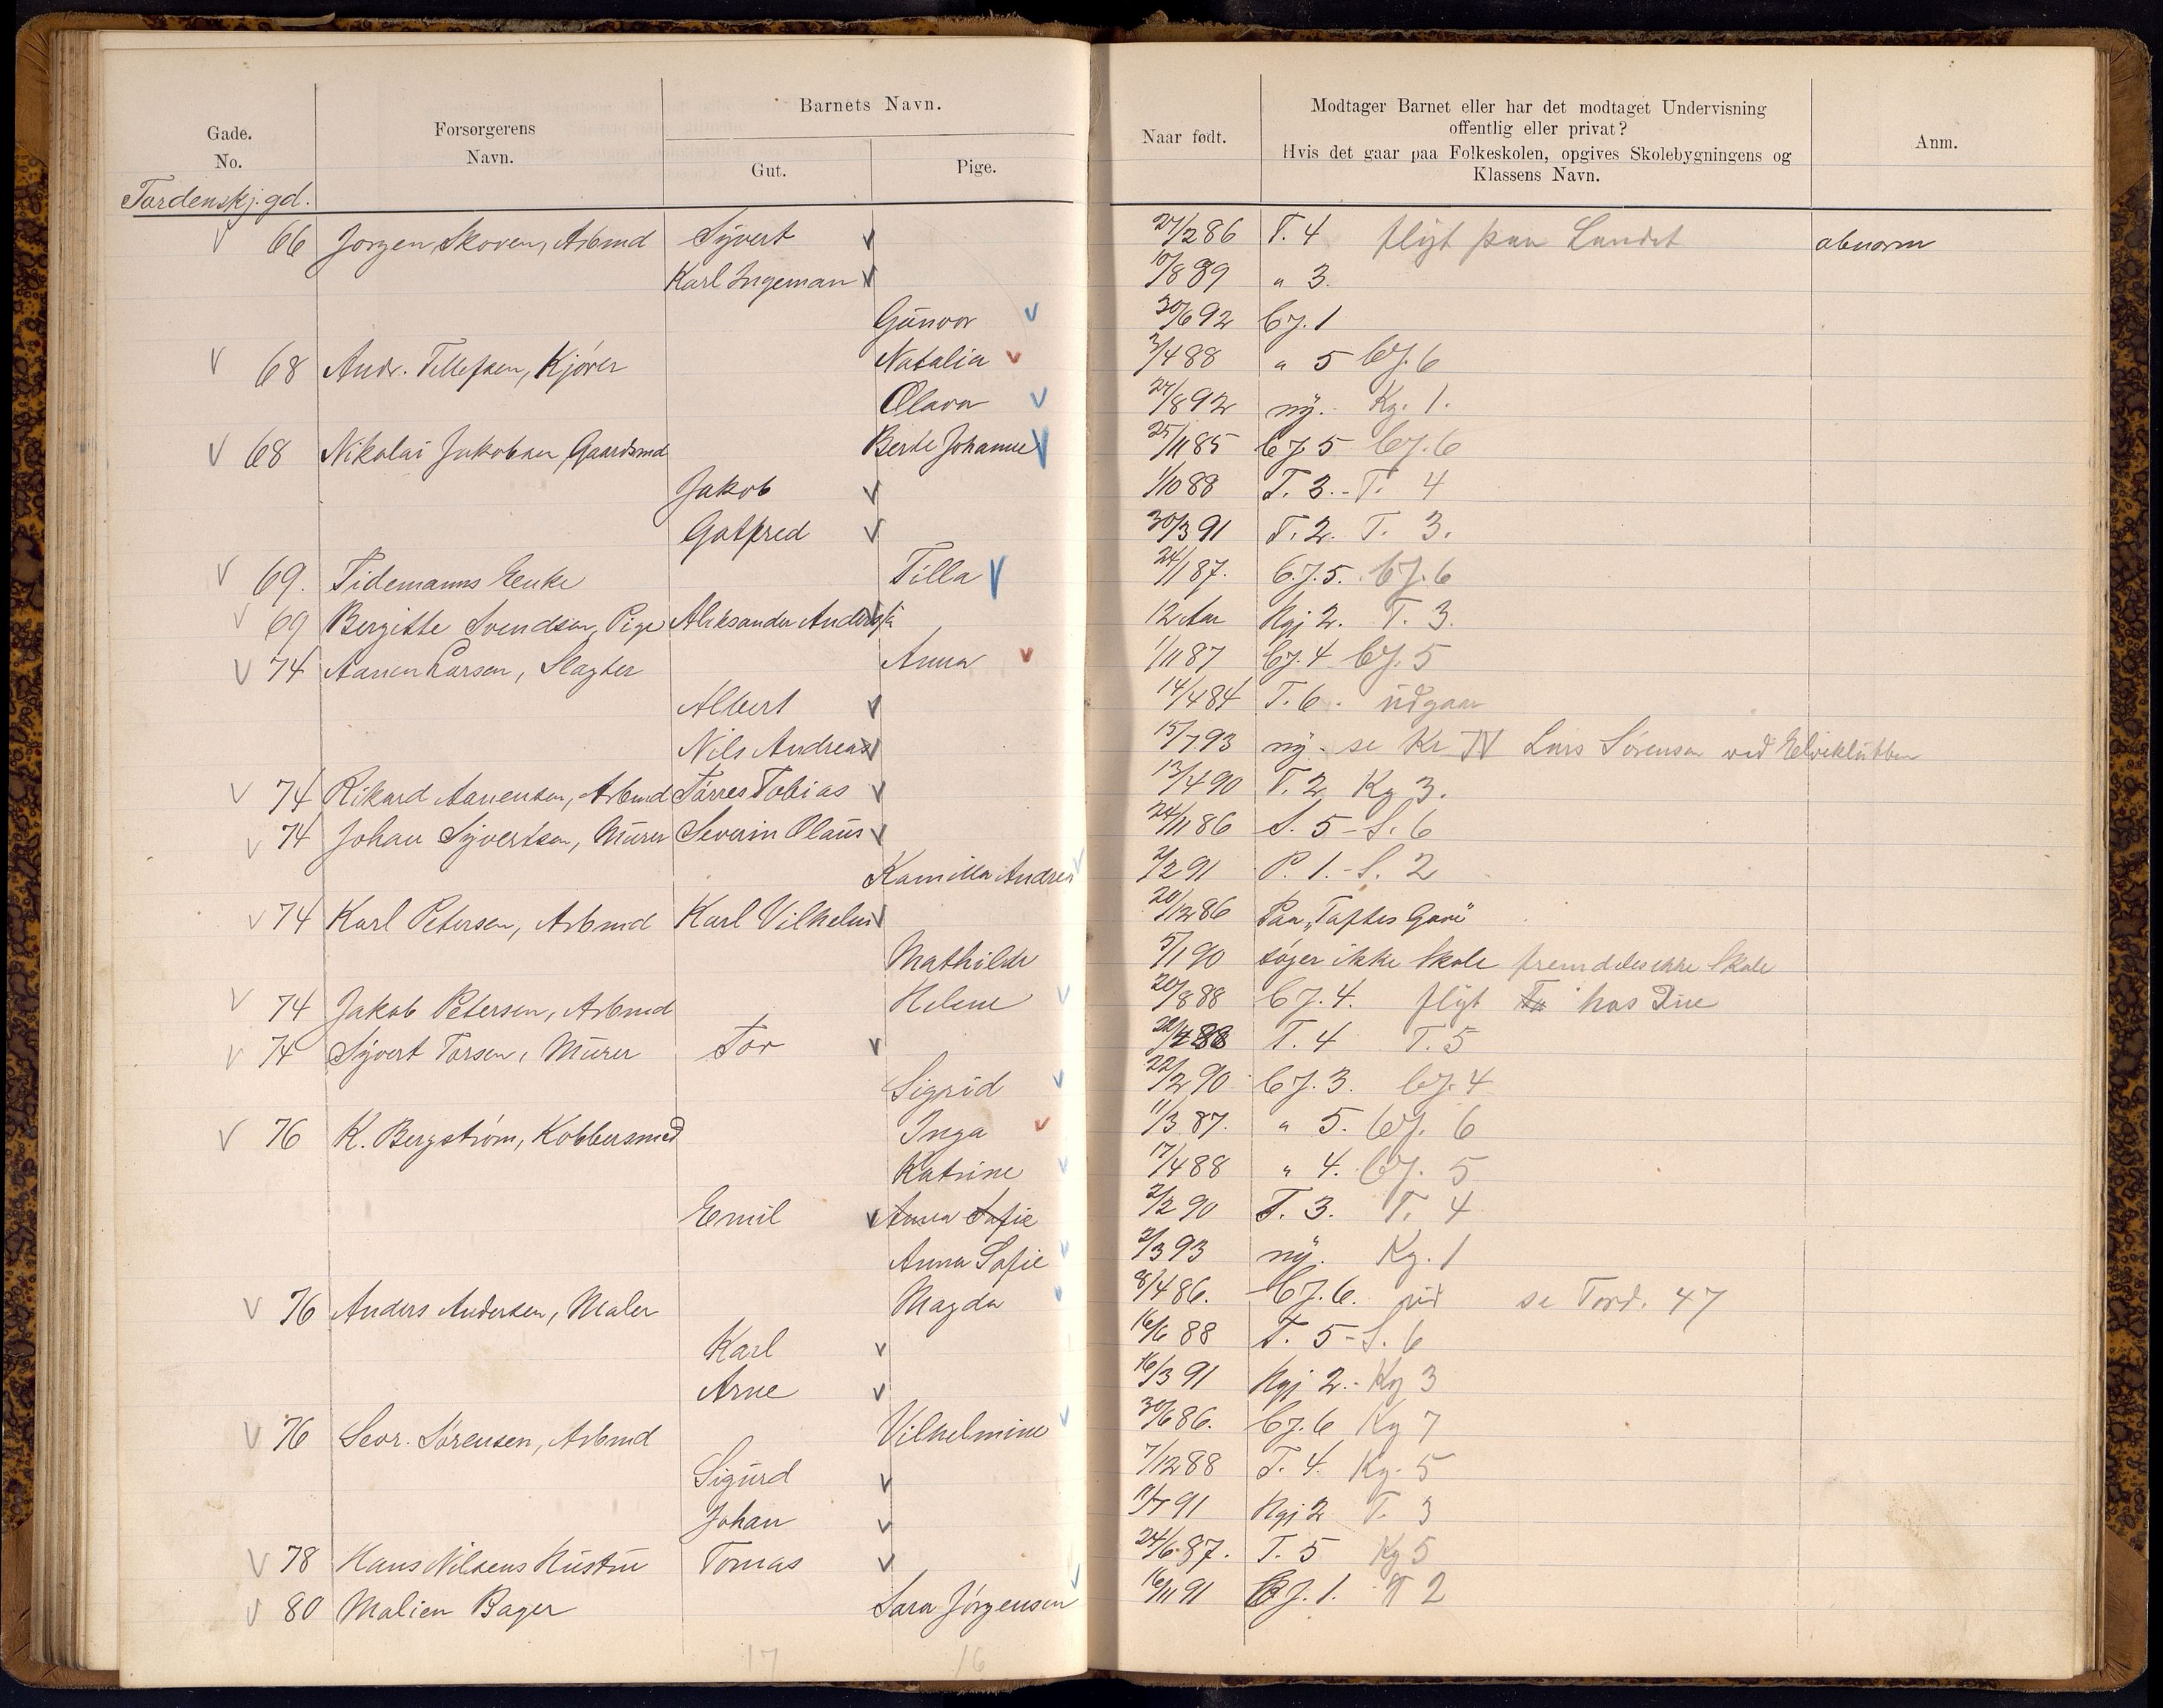 Gade.
No.
Forsørgerens
Navn.
Barnets Navn.
Gut.
Pige.
Naar født.
Modtager Barnet eller har det modtaget Undervisning
offentlig eller privat?
Hvis det gaar paa Folkeskolen, opgives Skolebygningens og
Klassens Navn.
Anm.
Tordenskj. gd.
66 Jørgen Skoven, Arbmd Syvert 27/2 86 T. 4 flyt paa Landet abnorm
Karl Ingeman 10/8 89 " 3.
Gunvor 30/6 92 Cj. 1
68 Andr. Tellefsen, Kjører Natalia 3/4 88 " 5 Cj. 6
Olava 27/8 92 ny. Kg. 1.
68 Nikolai Jakobsen Gaardsmd Berte Johanne 25/11 85 Cj 5 Cj. 6
Jakob 1/10 88 T. 3. - T. 4
Gotfred 30/3 91 T. 2. T. 3.
69. Tidemanns Enke Tilla 24/1 87. C. J. 5. Cj. 6
69 Bergitte Svendsen, Pige Aleksander 12 Aar Kgj 2. T. 3.
74 Aanen Larsen, Slagter Anna 1/11 87 Cj. 4 Cj. 5
Albert 14/4 84 T. 6. udgaar
Nils Andreas 15/7 93 ny. se Kr IV Lars Sørensen ved
74 Rikard Aanensen, Arbmd Tørres Tobias 13/4 90 T. 2 Kg 3.
74 Johan Syvertsen, Murer Severin Olaus 24/11 86 S. 5 - S. 6
Kamilla Andrea 2/2 91 P. 1. - S. 2
74 Karl Petersen, Arbmd Karl Vilhelm 20/12 86 Paa „Toftes Gave"
Mathilde 5/1 90 søger ikke Skole fremdeles ikke Skole
74 Jakob Petersen, Arbmd Helene 20/8 88 Cj. 4. flyt hos Due
74 Syvert Torsen, Murer Tor 88 T. 4 T. 5
Sigrid 22/2 90 Cj. 3. Cj. 4
76 K. Bergstrøm, Kobbersmed Inga 11/3 87. " 5. Cj. 6
Katrine 17/4 88 " 4. Cj. 5
Emil Anna Sofie 2/2 90 T. 3. T. 4
Anna Sofie 2/3 93 ny. Kg. 1
76 Anders Andersen, Maler Magda 8/4 86. Cj. 6. ud se Tord. 47
Karl 16/6 88 T. 5 - S. 6
Arne 16/3 91 Kgj 2. - Kg 3
76 Sevr. Sørensen, Arbmd Vilhelmine 30/6 86. Cj. 6 Kg 7
Sigurd 7/12 88 T. 4. Kg. 5
Johan 91 Kgj 2 T. 3
78 Hans Nilsens Hustru Tomas 24/6 87. T. 5 Kg 5
80 Malien Bager Sara Jørgensen 16/11 91 Cj. 1. T 2
17 16